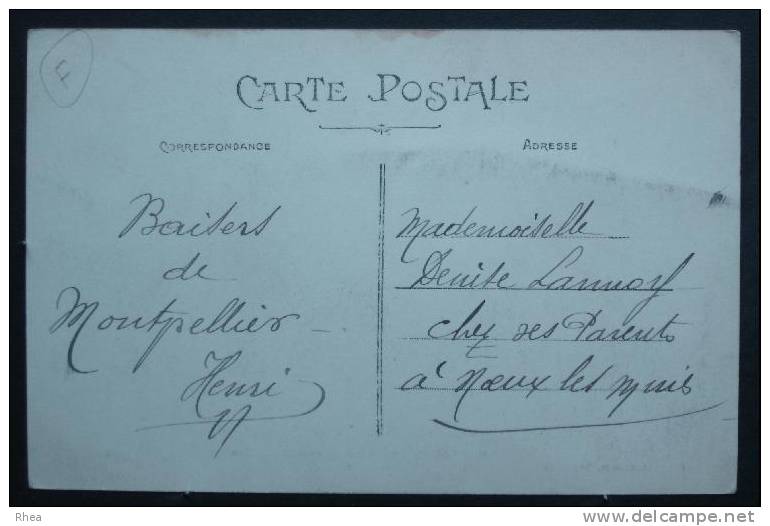 F
CARTE POSTALE
CORRESPONDANCE
ADRESSE
Baisers
de
Montpellier
Henri
Mademoiselle
Denise Lannoy
chez ses Parents
à Noeux les Mines
Rhea
www.delcampe.net